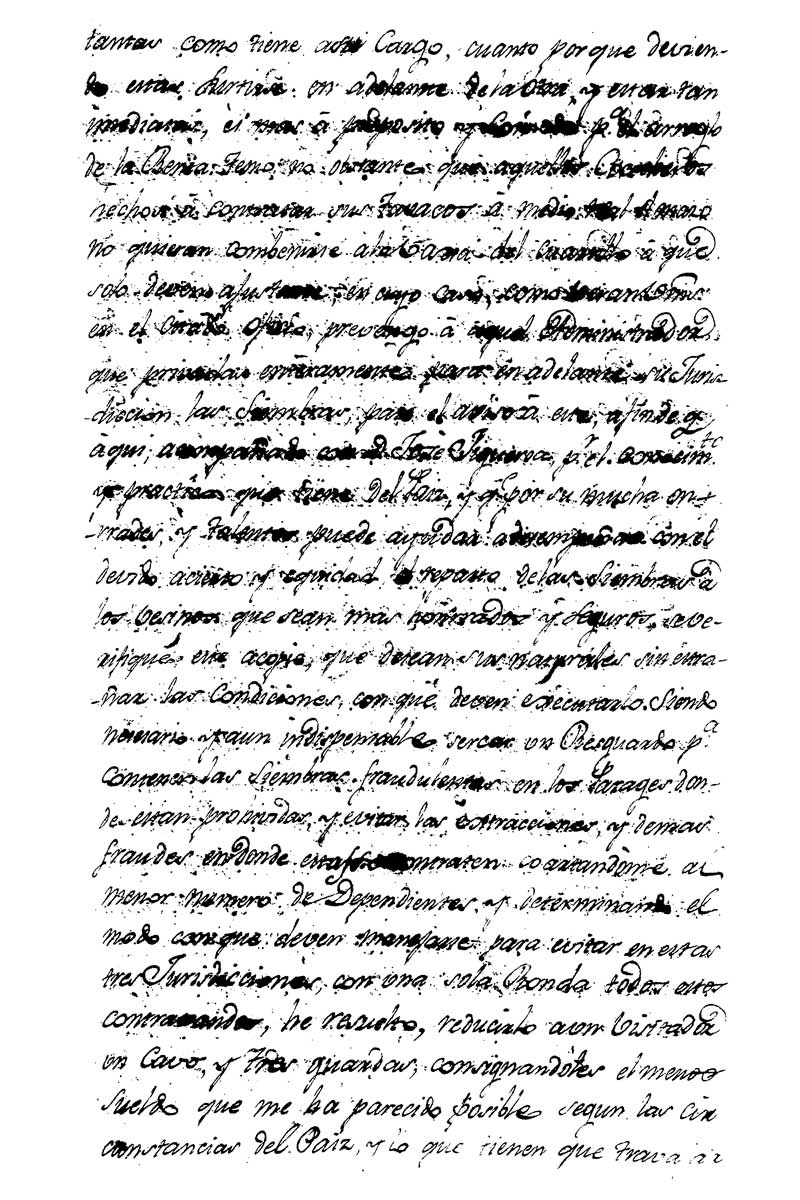 tantas como tiene asu Cargo, cuanto porque devien-
do estas surtirse en adelante dela otra, y estar tan
imediatas, es mas â proposito y comodo p.ª el arreglo
de la Renta. Pero no obstante que aquellos
hechos â contratar sus Tavacos â
no quieran combenirse ala Tarifa del â que
solo deven ajustarse, en cuyo caso, como
en el Citado Oficio, prevengo â aquel Administrador
que privadas enteramente para en adelante su Juris-
diccion las Siembras, pase el aviso â este, afin de q.e
â qui, acompañado con d. José Figueroa, p.r el conocim.to
y practica que tiene Del Paiz, y q.e por su mucha on-
rrades, y talento puede ayudar a desempeñar con el
devido acierto y equidad el reparto delas Siembras â
los vesinos que sean mas honrrados y seguros, se ve-
rifique este acopio, que desean sus naturales sin estra-
-ñar las Condiciones, con que deven executarlo. Siendo
nesesario y aun indispensable sercar un Resguardo p.ª
contener las Siembras fraudulentas en los Parages don-
de estan proividas, y evitar las extracciones, y demas
fraudes en donde contraten coartandome al
menor numero de Dependientes, y determinando el
modo con que deven manejarse para evitar en estas
tres Jurisdicciones, con una sola Ronda todos estos
contravandos, he resuelto, reducirlo a un Visitador
un Cavo, y Tres guardas, consignandoles el menor
sueldo que me ha parecido posible segun las Cir
cunstancias del Paiz, y lo que tienen que travajar